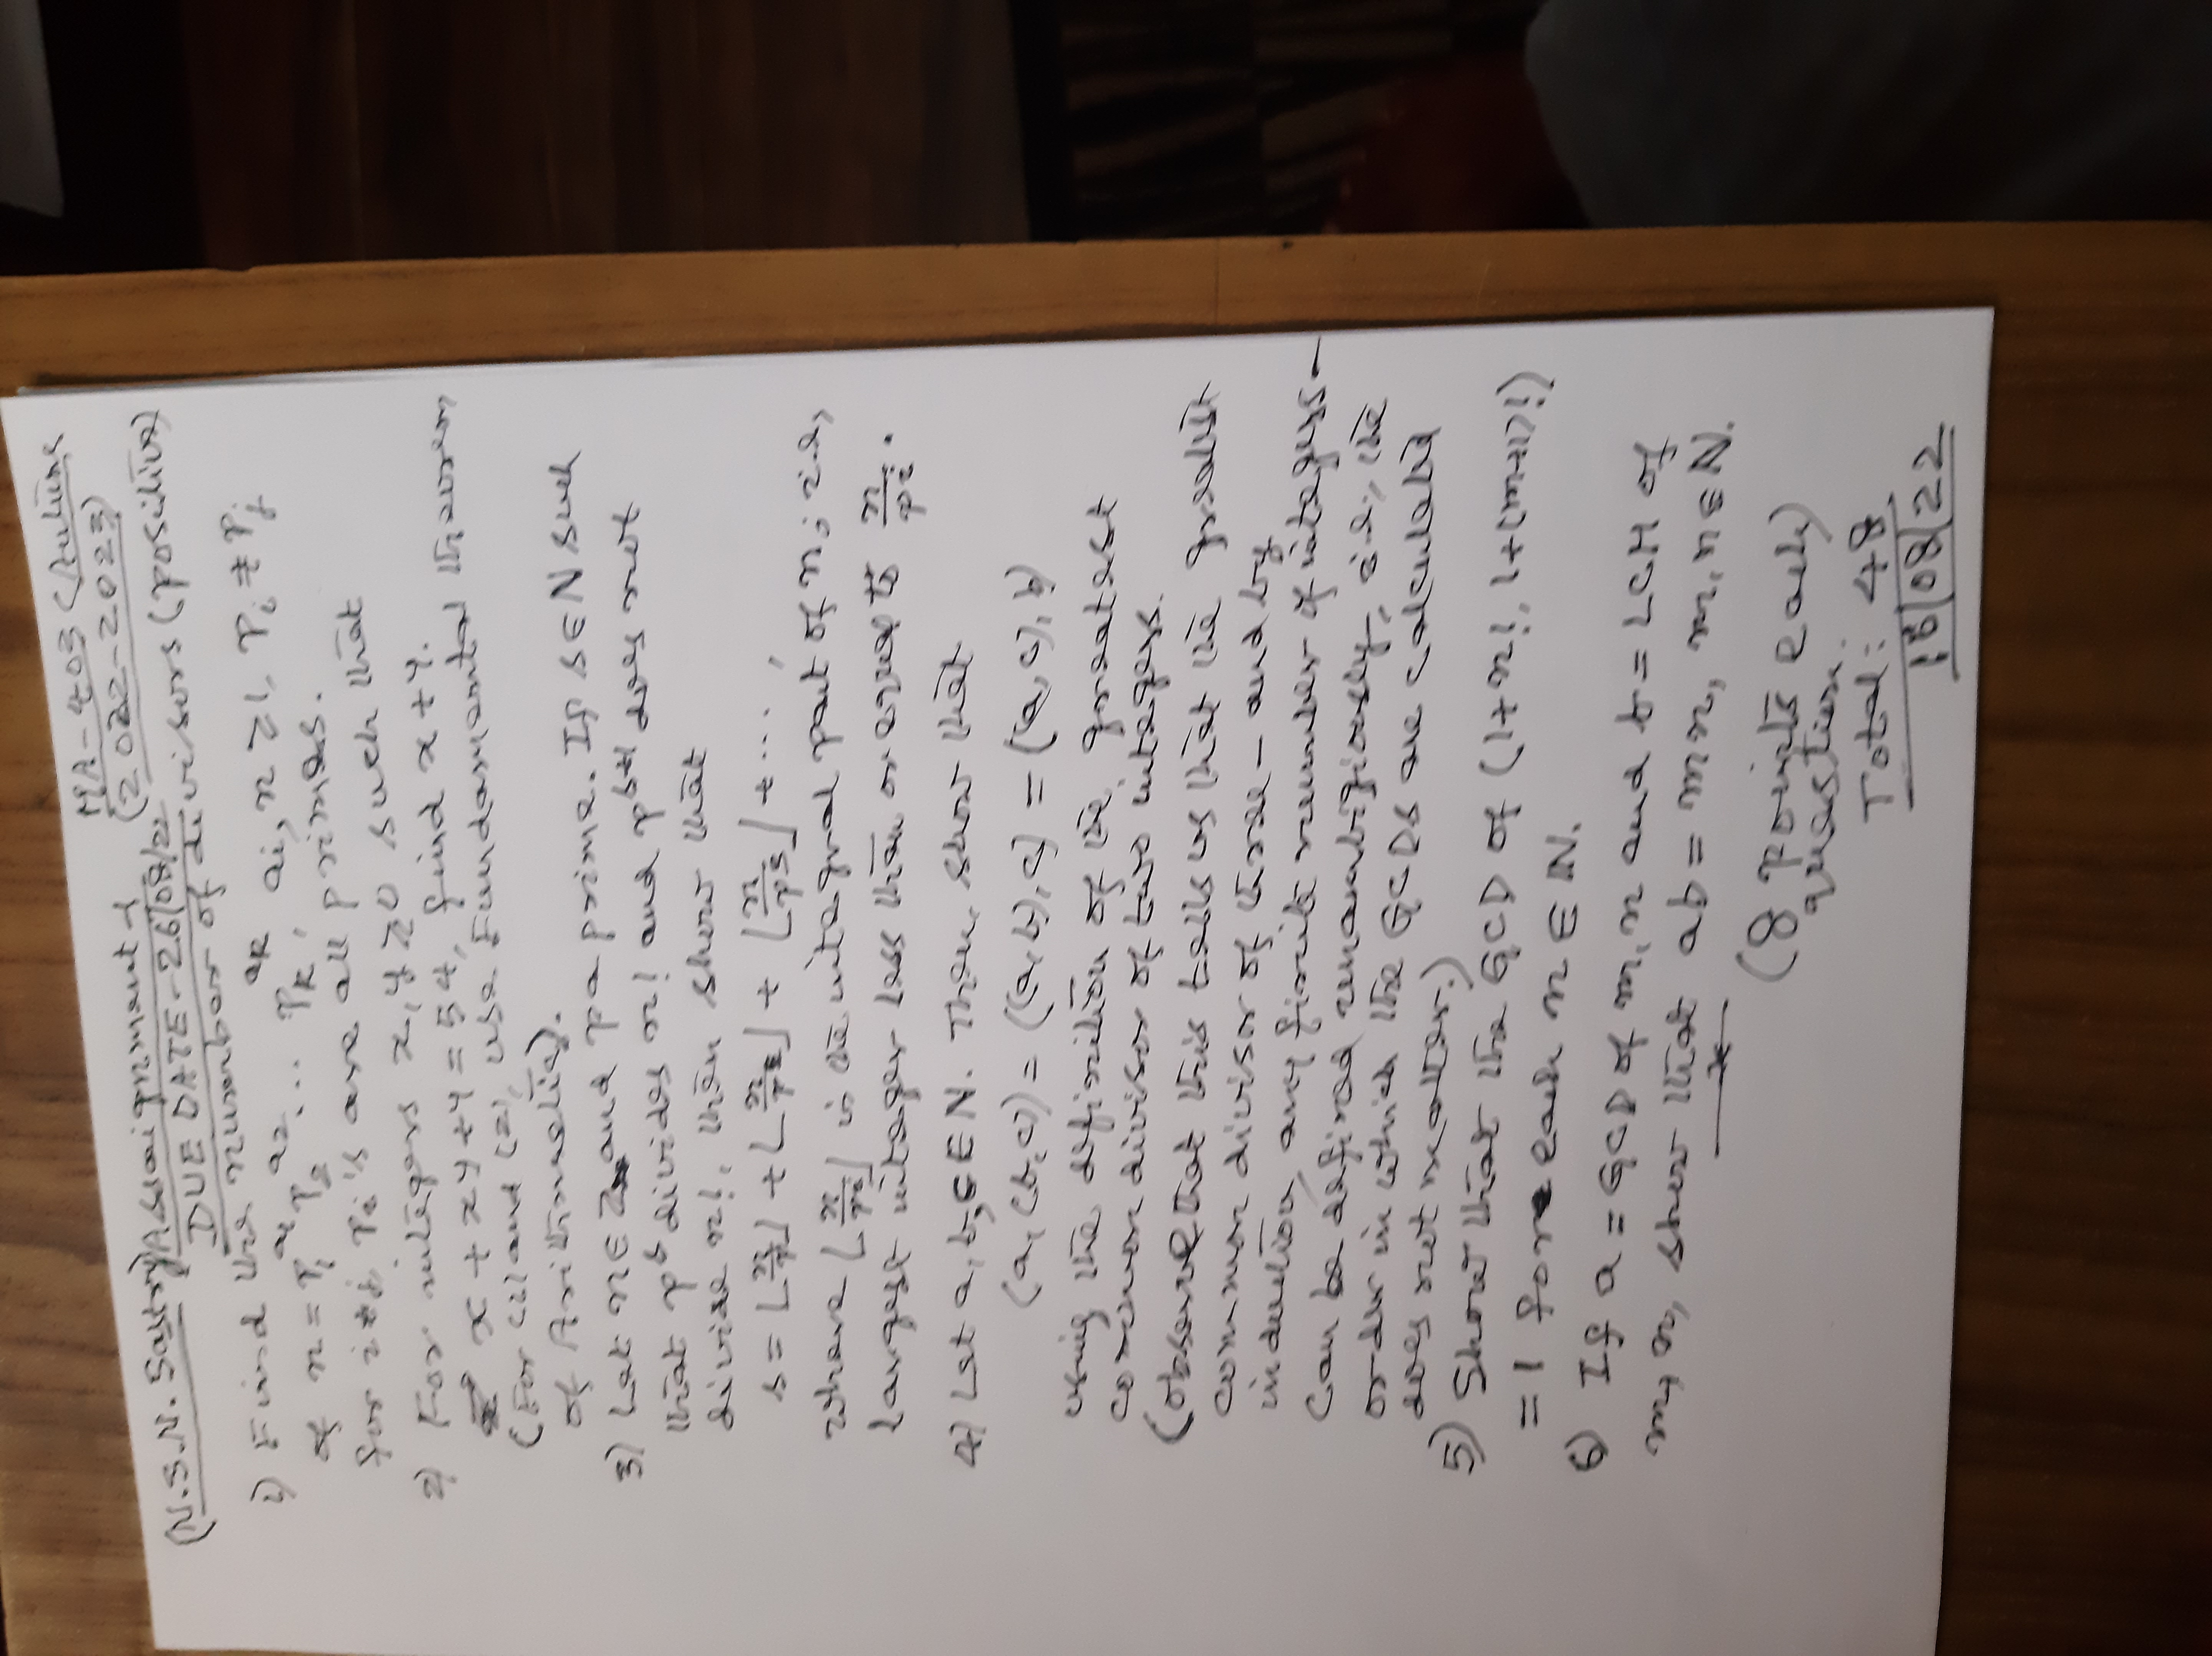 MA-403 (Autumn
(2022-2023)
(N.S.N. Sastry) Assignment-1
DUE DATE-26/08/22
1) Find the number of divisors (positive)
of n = p₁^a₁ p₂^a₂ ... p_k^a_k, ai, n ≥ 1, Pi ≠ Pj
for i≠j, Pi's are all primes.
2) For integers x, y ≥ 0 such that
x + xy + y = 54, find x + y.
(For (1) and (2), use Fundamental theorem
of Arithmetic).
3) Let n ∈ Z and p a prime. If s ∈ N such
that p^s divides n! and p^s+1 does not
divide n!, then show that
s = ⌊n/p⌋ + ⌊n/p²⌋ + ⌊n/p³⌋ + ... ,
where ⌊n/p^i⌋ is the integral part of n; i.e,
largest integer less than or equal to n/p^i.
4) Let a, b, c ∈ N. Then, show that
(a, (b, c)) = ((a, b), c) = ((a, c), b)
using the definition of the greatest
common divisor of two integers.
(observe that this tells us that the greatest
common divisor of three - and by
induction, any finite number of integers -
can be defined unambigiously, i.e., the
order in which the GCDs are calculated
does not matter.)
5) Show that the GCD of (1+n!, 1+(n+1)!)
= 1 for each n ∈ N.
6) If a = GCD of m, n and b = LCM of
m, n, show that ab = mn, m, n ∈ N.
(8 points each)
question.
Total: 48
16/08/22